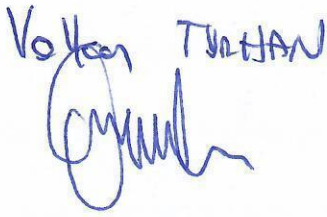 Volkan TURHAN